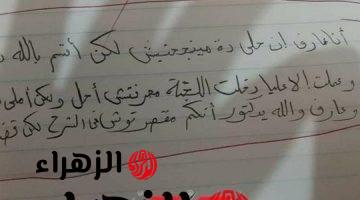 أنا عارف إن حلى ده مينجحنيش لكن أنتم بالله
وعملت الاعليا دخلت اللجنة معرفتش أحل ولكن أملى
وعارف والله يدكتور أنكم مقصرتوش فى الشرح لكن
الزهراء
الزهراء